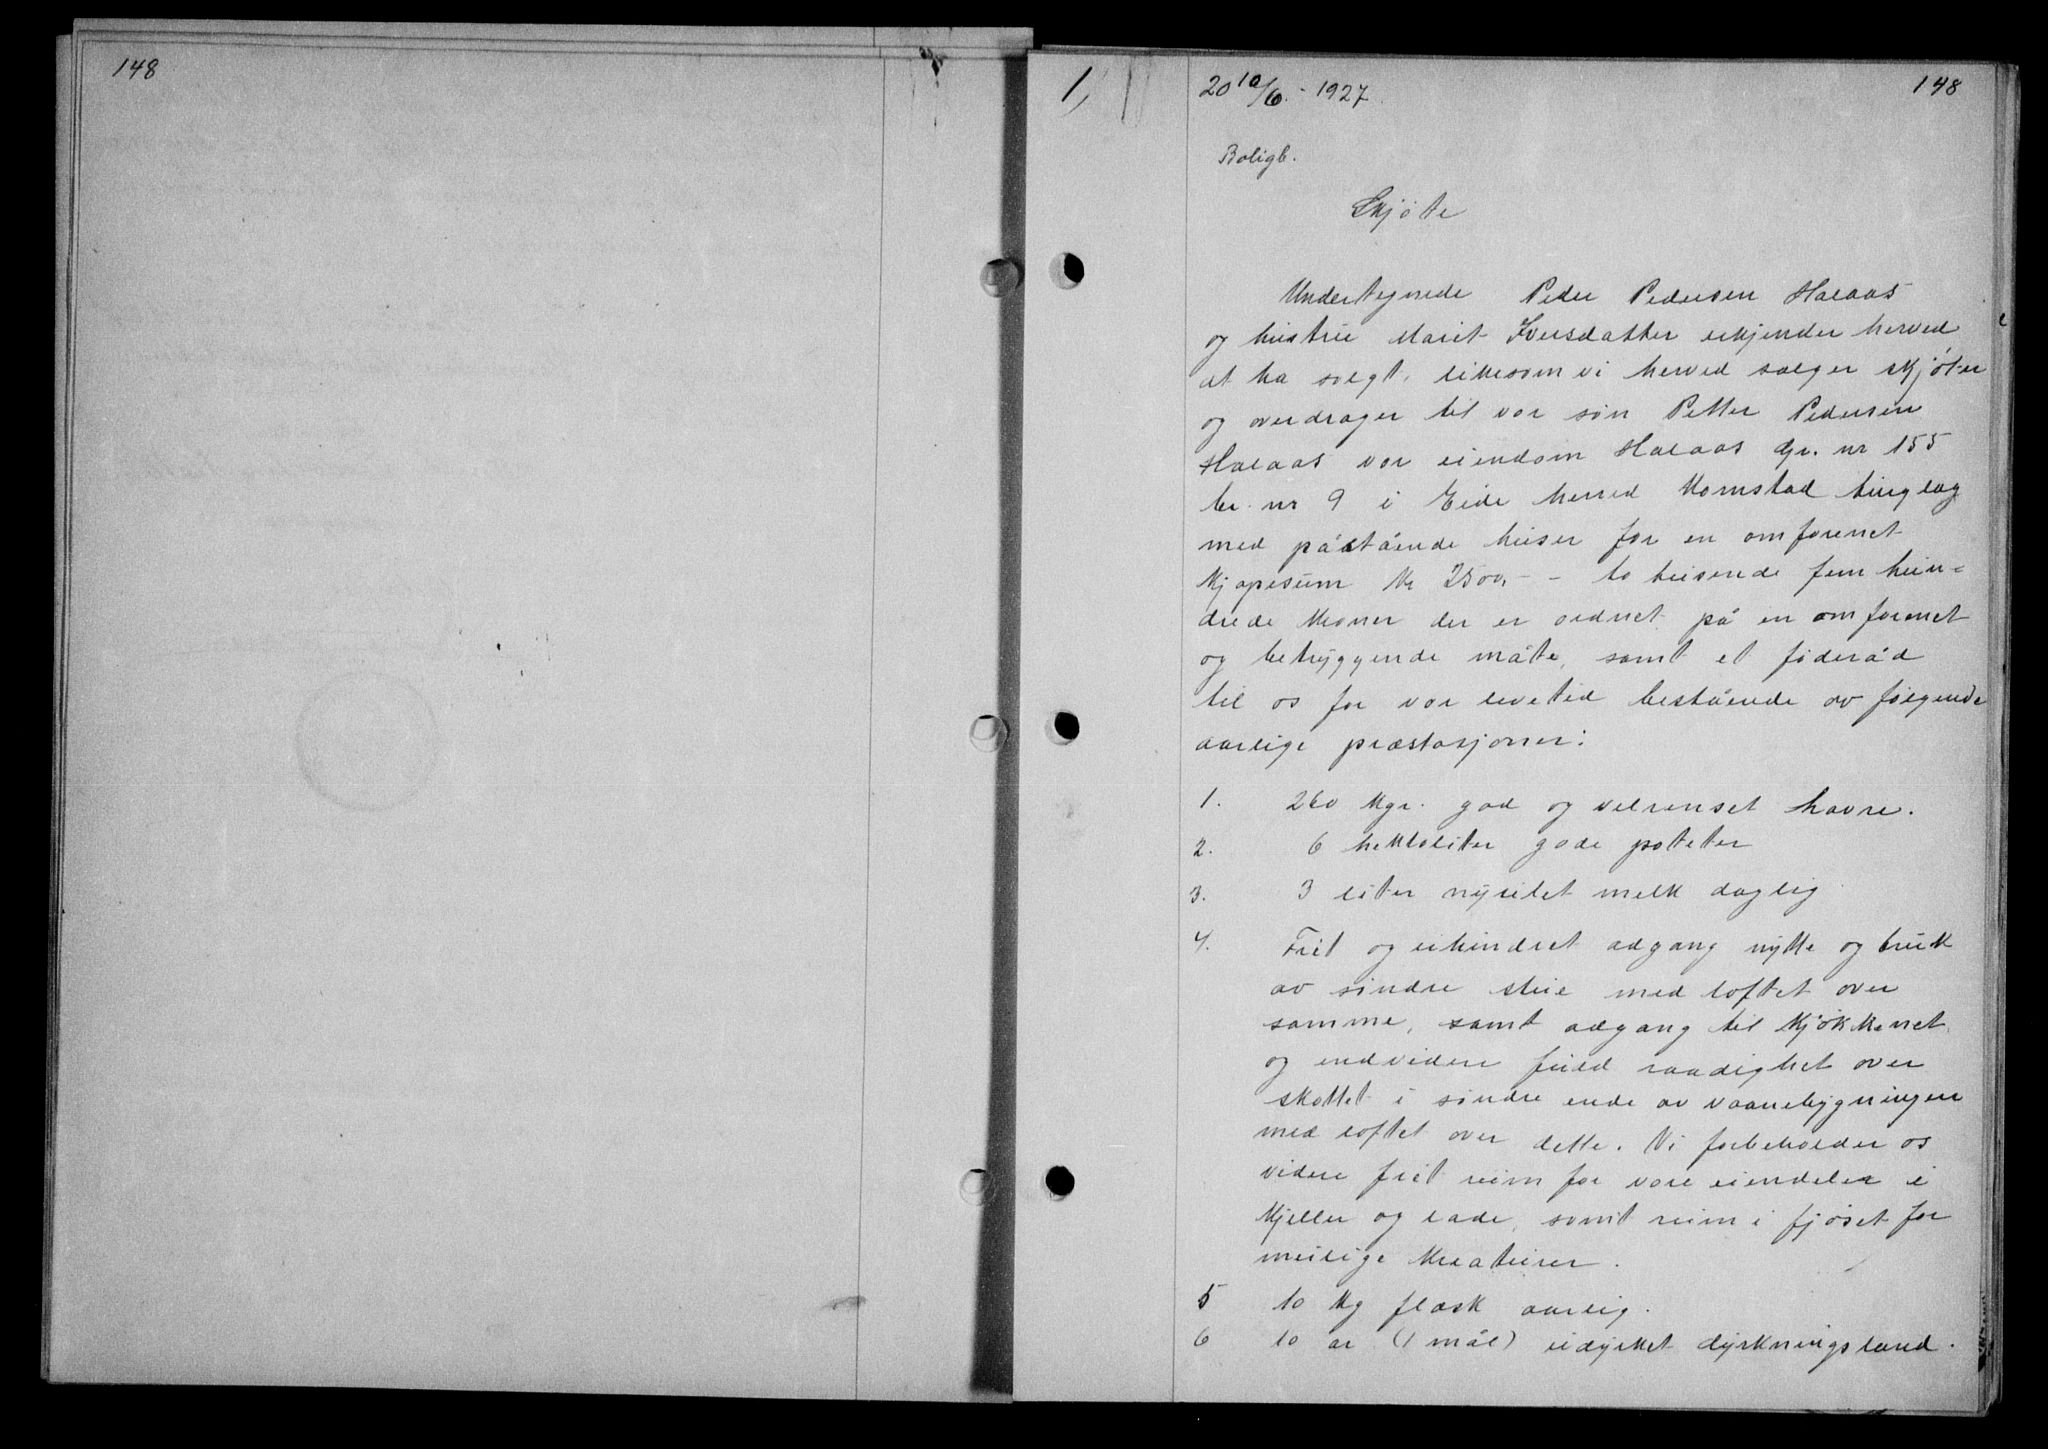 148
1,
20 10/6. - 1927.
148
Boligb.
Skjöte
Undertegnede Peder Pedersen Halaas
og hustru Marit Iversdatter erkjender herved
at ha solgt, likesom vi herved sælger skjöter
og overdrager til vor sön Petter Pedersen
Halaas vor eiendom Halaas Gr. nr 155
br. nr 9 i Eide herred Kornstad tinglag
med påstående huser for en omforenet
kjøpesum Kr 2500,- - to tusende fem hun=
drede kroner der er ordnet på en omforenet
og betryggende måte, samt et föderåd
til os for vor levetid bestående av følgende
aarlige præstasjoner:
1. 260 Kgr. god og velrenset havre.
2. 6 hektoliter gode poteter
3. 3 liter nysilet melk daglig
4. Frit og uhindret adgang nytte og bruk
av söndre stue med loftet over
samme, samt adgang til kjökkenet,
og endvidere fuld raadighet over
skottet i söndre ende av vaanebygningen
med loftet over dette. Vi forbeholder os
videre frit rum for vore eiendeler i
kjeller og lade, samt rum i fjöset for
mulige kreaturer.
5 10 Kg flæsk aarlig.
6 10 ar (1 mål) udyrket dyrkningsland.